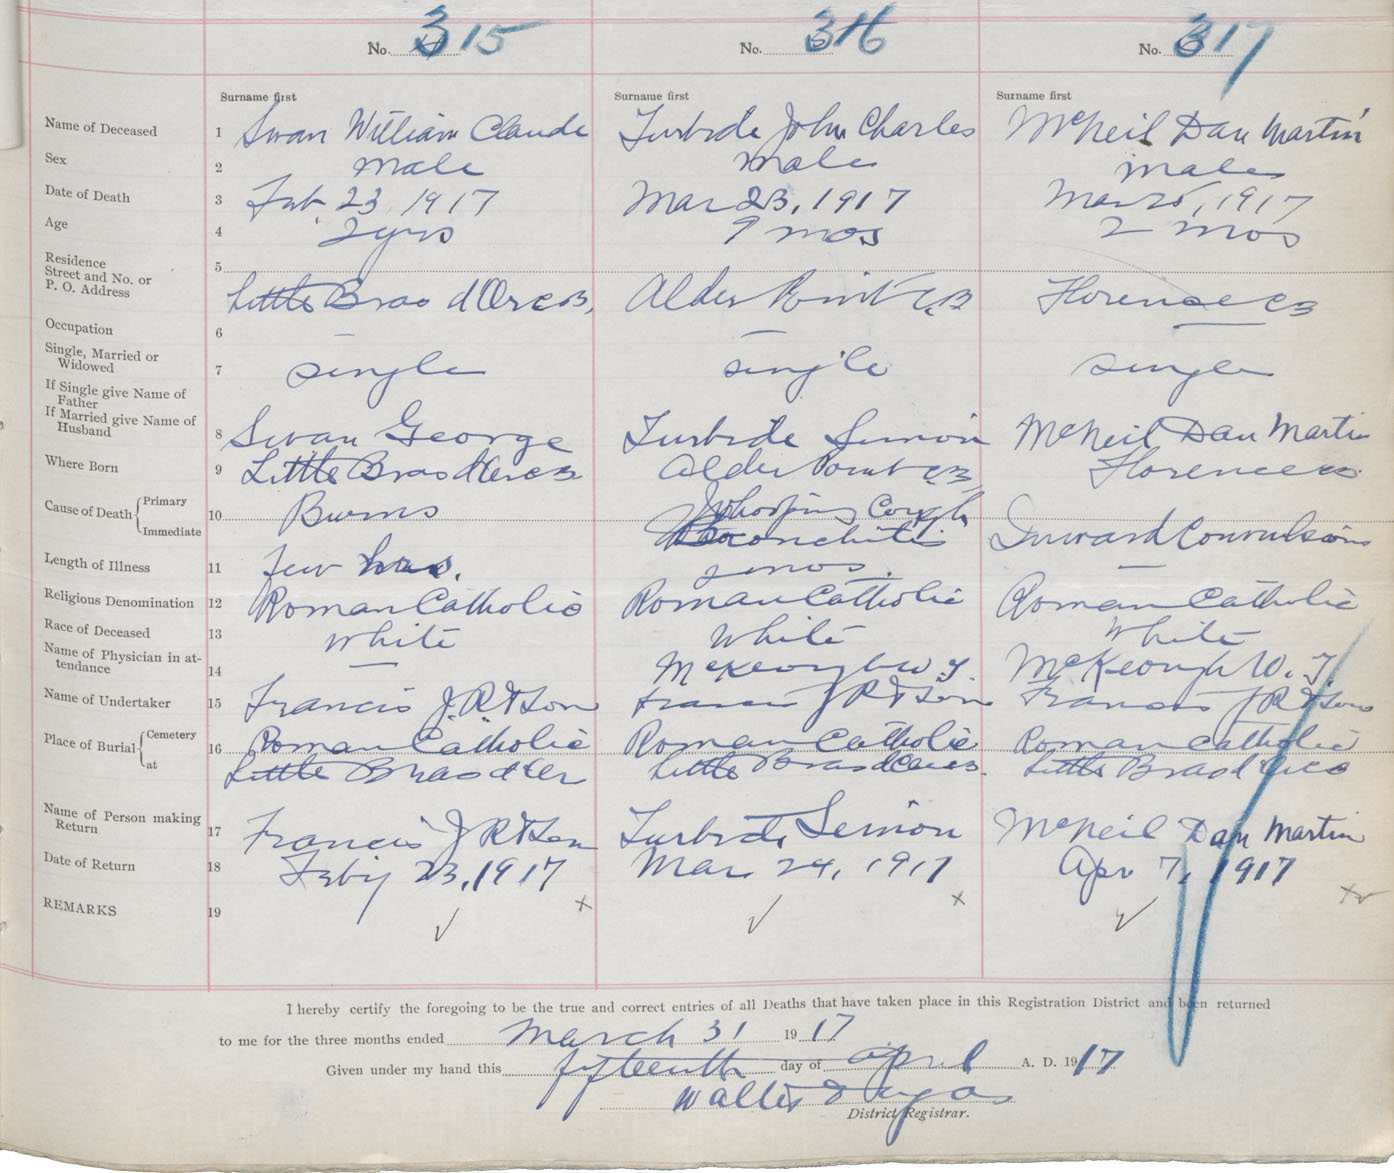 No. 315 No. 316 No. 317
Surname first Surname first Surname first
Name of Deceased 1 Swan William Claude Turbide John Charles McNeil Dan Martin
Sex 2 Male Male Male
Date of Death 3 Feb. 23, 1917 Mar 23, 1917 Mar 25, 1917
Age 4 2 yrs 9 mos 2 mos
Residence
Street and No. or 5
P. O. Address Little Bras d'Or C B, Alder Point C. B Florence C B
Occupation 6 — — —
Single, Married or
Widowed 7 single single single
If Single give Name of
Father
If Married give Name of
Husband 8 Swan George Turbide Simon McNeil Dan Martin
Where Born 9 Little Bras d'Or C B Alder Point C B Florence C B
Cause of Death { Primary 10 Burns Whooping Cough
Immediate Bronchitis Inward Convulsions
Length of Illness 11 few hrs. 2 mos. —
Religious Denomination 12 Roman Catholic Roman Catholic Roman Catholic
Race of Deceased 13 White White White
Name of Physician in at-
tendance 14 — McKeough W. T. McKeough W. T
Name of Undertaker 15 Francis J. R & Son Francis J R & Son Francis J R & Son
Place of Burial { Cemetery 16 Roman Catholic Roman Catholic Roman Catholic
at Little Bras d'Or Little Bras d'Or C B. Little Bras d'Or C B
Name of Person making
Return 17 Francis J R & Son Turbide Simon McNeil Dan Martin
Date of Return 18 Feby 23, 1917 Mar 24, 1917 Apr 7, 1917
REMARKS 19
I hereby certify the foregoing to be the true and correct entries of all Deaths that have taken place in this Registration District and been returned
to me for the three months ended March 31 1917
Given under my hand this fifteenth day of April A. D. 1917
Walter
District Registrar.